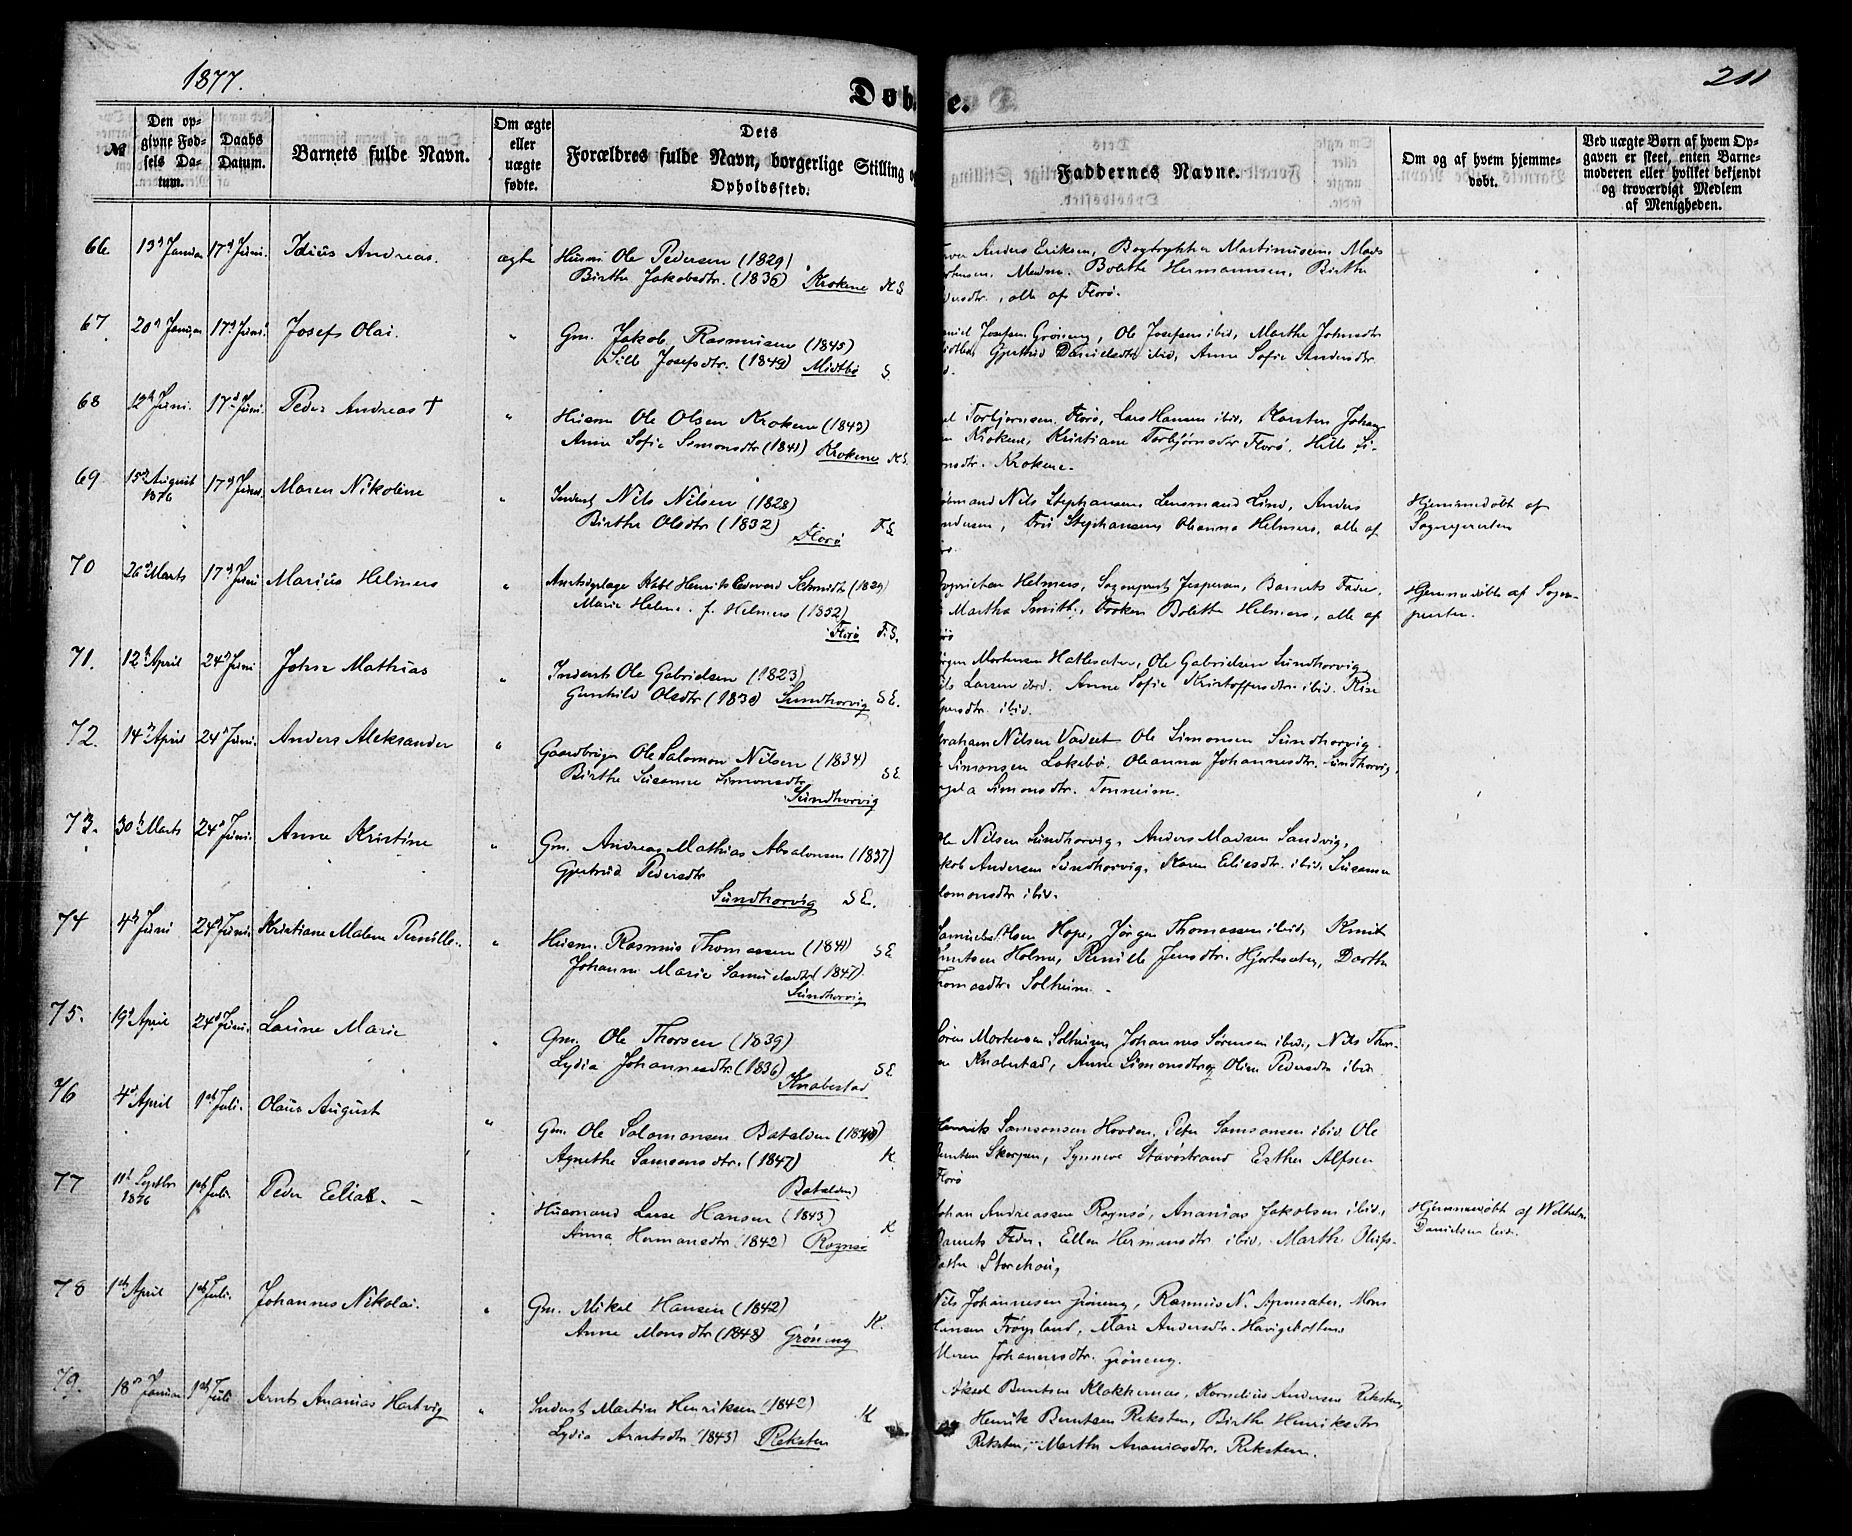 1877.
211
Døb e.
№
Den op-
givne Fød-
sels Da-
tum.
Daabs
Datum.
Barnets fulde Navn.
Om ægte
eller
uægte
fødte.
Dets
Forældres fulde Navn, borgerlige Stilling o
Opholdssted.
Faddernes Navne.
Om og af hvem hjemme-
døbt.
Ved uægte Børn af hvem Op-
gaven er skeet, enten Barne-
moderen eller hvilket bekjendt
og troværdigt Medlem
af Menigheden.
66. 13 Januar 17d Juni. Idius Andreas. ægte Husm Ole Pedersen (1829)
Birthe Jakobsdtr. (1836) Krokene K S
Anders Eriksen, Bogtrykker Martinussen, Mads
Mortensen, Madm. Bolethe Hermannsen, Birthe
dtr, alle af Florø.
67. 20d Januar 17d Juni. Josef Olai. " Gm. Jakob Rasmussen (1845)
Sille Josefsdtr. (1849) Midtbø S.
Josefsen Grøneng, Ole Josefsen ibid, Marthe Johnsdtr
Gjertrud Danielsdtr ibid, Anne Sofie Andersdtr
68 12te Juni. 17d Juni. Peder Andreas † " Husm Ole Olsen Krokene (1843)
Anne Sofie Simonsdtr (1841) Krokene K S.
Torbjørnsen, Florø, Lars Hansen ibid, Karsten Johan
Krokene, Kristiane Torbjørnsdtr Florø, Hille Si-
monsdtr. Krokene.
69 15de August
1876 17d Juni. Maren Nikoline " Inderst Nils Nilsen (1828)
Birthe Olsdtr (1832) Florø F. S
mand Nils Stephansen Lensmand Lind, Anders
Andersen, Fru Stephansen, Oleanna Helmers, alle af
Hjemmedøbt af
Sognepresten
70 26d Marts 17d Juni Marius Helmers " Amtsdyrlæge Henrik Edevard Schmidt (1829)
Marie Helene f. Helmers (1852)
Florø F. S.
Proprietær Helmers, Sogneprest Jespersen, Barnets Fader,
Martha Smith, Frøken Bolette Helmers, alle af
Hjemmedøbt af Sogne-
presten.
71. 12te April 24d Juni Johan Mathias " Inderst Ole Gabrielsen (1823)
Gunhild Olsdtr (1830) Sundhorvig S E.
Mortensen Hatlesæter, Ole Gabrielsen Sundhorvig
Nils Larsen ibid. Anne Sofie Kristoffersdtr ibid.
dtr. ibid.
72. 14de April 24d Juni. Anders Aleksander " Gaardbruger Ole Salomon Nilsen (1834)
Birthe Susanne Simonsdtr S E
Sundhorvig
Abraham Nilsen Vadset Ole Simonsen Sundhorvig
Simonsen Løkebø, Oleanna Johannesdtr. Sundhorvig,
Simonsdtr. Tonheim.
73. 30te Marts 24d Juni. Anne Kristine " Gm. Andreas Mathias Absalonsen (1837)
Gjertrud Pedersdtr
Sundhorvig S E.
Ole Nilsen Sundhorvig, Anders Madsen Sandvig,
Jakob Andersen Sundhorvig, Karen Eliesdtr. ibid, Susanne
Salomonsdtr ibid.
74 4de Juni 24d Juni. Kristiane Malene Pernille. " Husm. Rasmus Thomassen (1841) S E
Johanne Marie Samuelsdtr (1847).
Sundhorvig
Samuel Olsen Hope, Jørgen Thomassen ibid, Knut
Knutsen Holme, Pernille Jensdtr. Hjortesæter, Dorthe
Thomasdtr Solheim.
75. 19d April 24d Juni. Laurine Marie " Gm. Ole Thorsen (1839)
Lydia Johannesdtr. (1836) S E
Knabestad
Søren Mortensen Solheim, Johannes Sørensen ibid, Nils Thor-
sen Knabestad, Anne Simonsdtr og Oline Pedersdtr ibid
76 4d April 1ste Juli. Olaus August " Gm. Ole Salomonsen Batalden (1840)
Agnethe Samsonsdtr. (1847) K.
Batalden
Henrik Samsonsen Hovden, Peter Samsonsen ibid Ole
Berntsen Skorpen, Synneve Stavøstrand Esther Alfsen
Florø
77 11te Septbr
1876 1ste Juli Peder Elias. - " Husmand Lasse Hansen (1843)
Anna Hermansdtr (1842) Rognsø K
Johan Andreassen Rognsø, Ananias Jakobsen ibid,
Barnets Fader, Ellen Hermansdtr ibid. Marthe Olufs-
datter Storehoug
Hjemmedøbt af Wilhelm
Danielsen
78 1ste April 1ste Juli. Johannes Nikolai. " Gm. Mikal Hansen (1842)
Anne Monsdtr (1848) Grøneng K.
Nils Johannesen Grøneng, Rasmus N. Apnesæter, Mons
Hansen Frøysland, Marie Andersdtr. Havigebotten
Maren Johannesdtr. Grøneng.
79. 18de Januar 1ste Juli Arnt Ananias Hartvig " Inderst Martin Henriksen (1842)
Lydia Arntsdtr (1843) Reksten K
Aksel Berntsen Klokkernes, Kornelius Andersen Reksten,
Henrik Berntsen Reksten, Birthe Henriksdtr
Reksten, Marthe Ananiasdtr. Reksten.